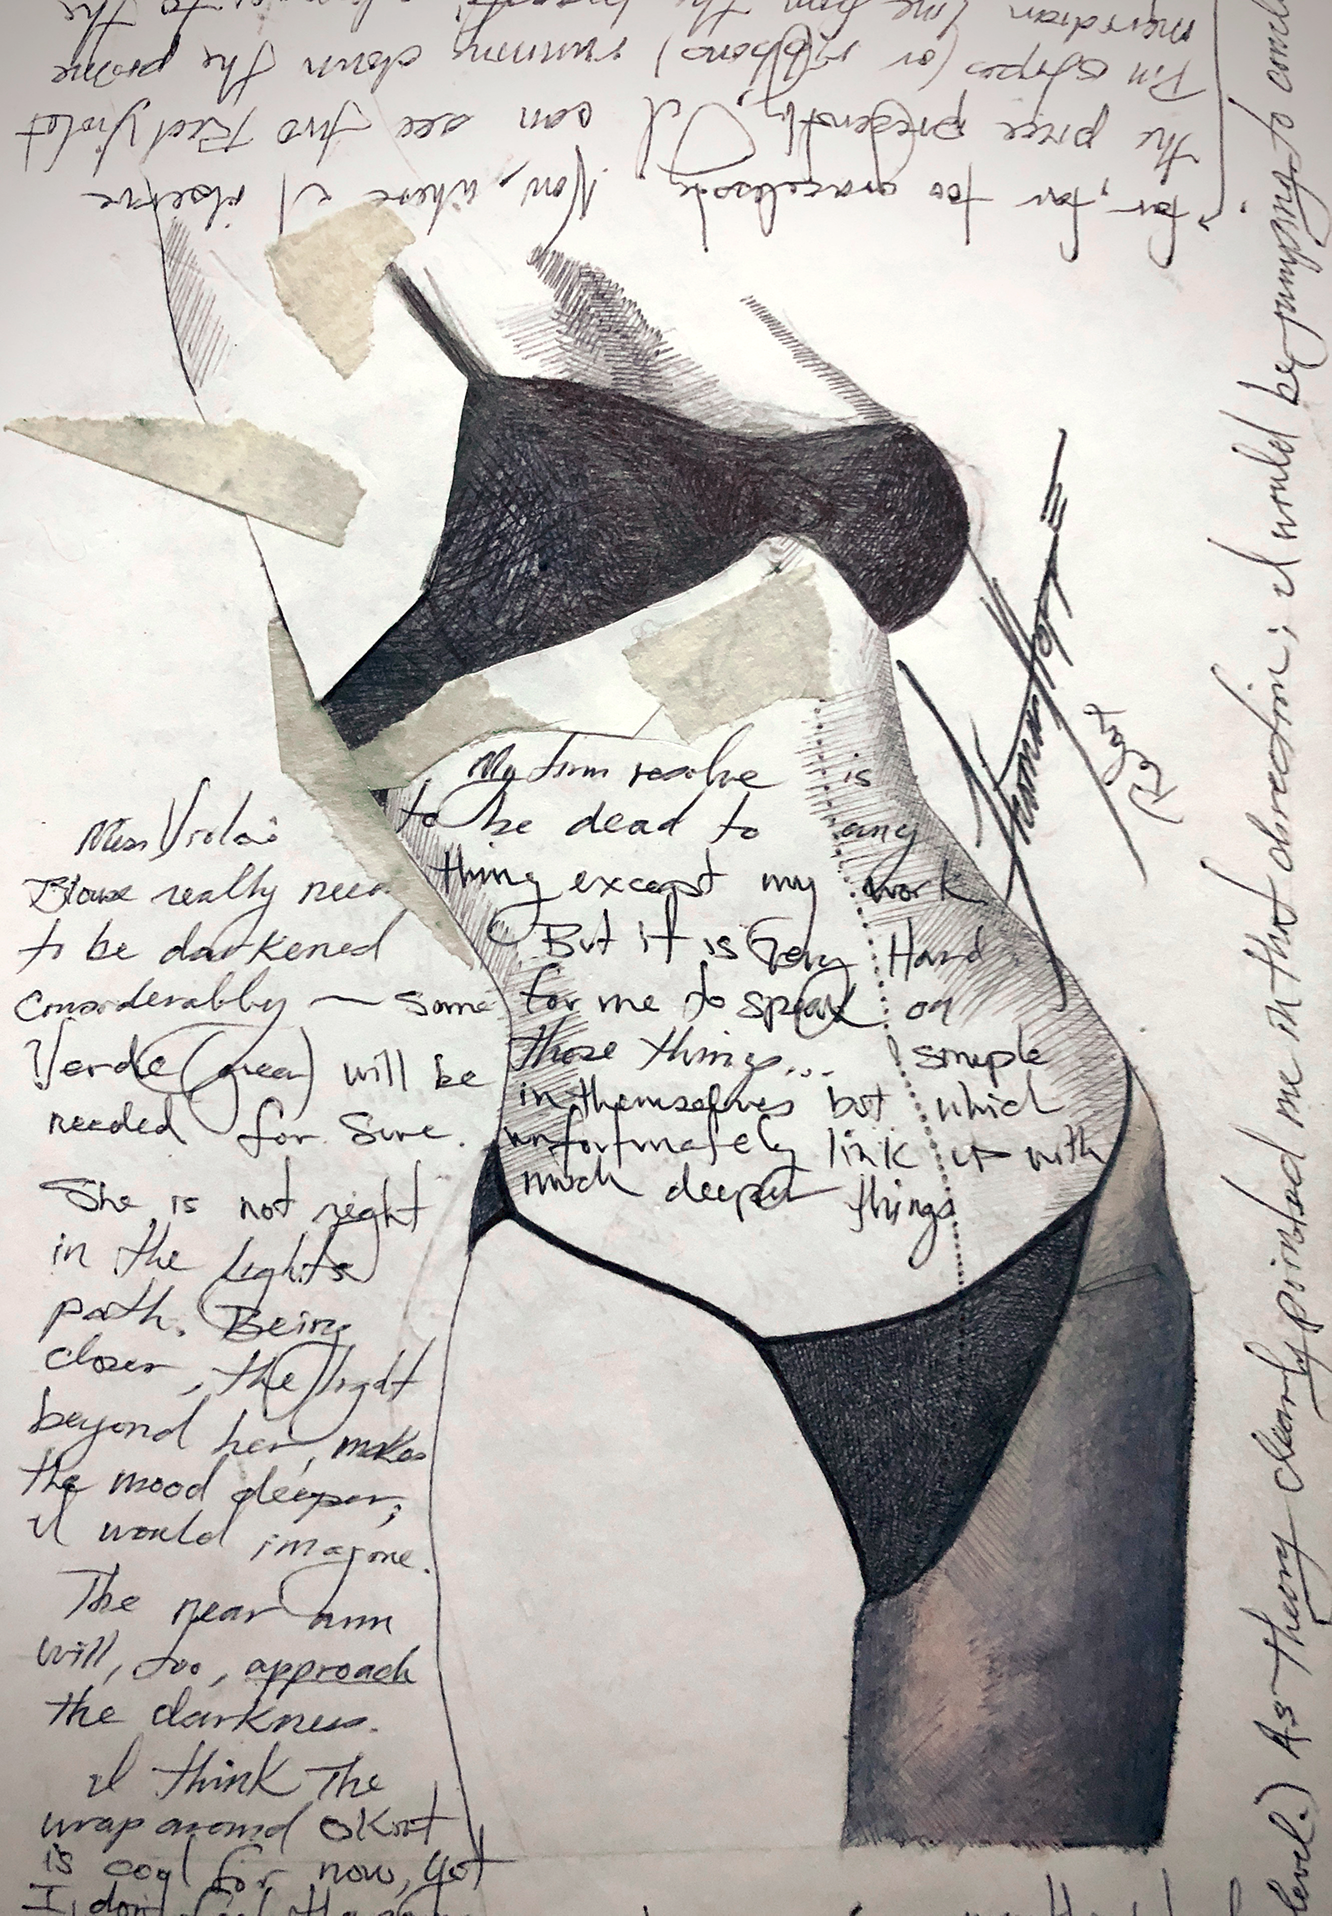 far, far too
the piece presently, I can see two Red Violet
Pin stripes (or ribbons) running down the
meridian line from the
My firm resolve is
to be dead to any
thing except my work
But it is Very Hard
for me to speak on
those things... simple
in themselves but which
unfortunately link up with
much deeper things
Miss Viola's
Blouse really need
to be darkened
considerably ~ some
Verde (green) will be
needed for sure.
She is not right
in the lights
path. Being
closer, the light
beyond her, makes
the mood deeper;
I would imagine.
The near arm
will, too, approach
the darkness.
I think The
wrap around skirt
is cool for now, yet
I don't
level.) As Theory clearly pointed me in that direction; I would be jumping to